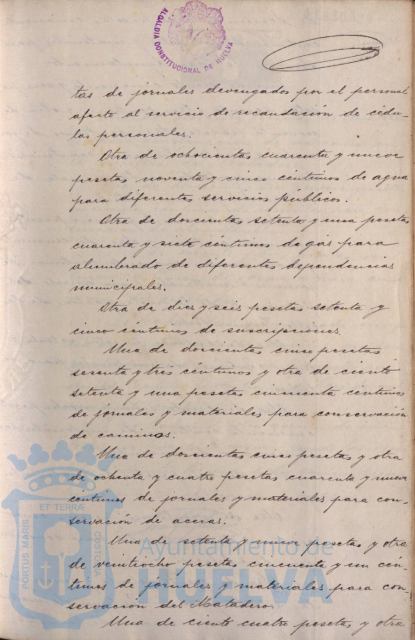 ALCALDIA CONSTITUCIONAL DE HUELVA
tas de jornales devengados por el personal
afecto al servicio de recaudación de cédu-
las personales.
Otra de ochocientas cuarenta y nueve
pesetas noventa y cinco céntimos de agua
para diferentes servicios públicos.
Otra de doscientas setenta y una pesetas
cuarenta y siete céntimos de gas para
alumbrado de diferentes dependencias
municipales.
Otra de diez y seis pesetas setenta y
cinco céntimos de suscripciones.
Una de doscientas cinco pesetas
sesenta y tres céntimos y otra de ciento
setenta y una pesetas cincuenta céntimos
de jornales y materiales para conservación
de caminos.
Una de doscientas cinco pesetas y otra
de ochenta y cuatro pesetas cuarenta y nueve
centimos de jornales y materiales para con-
servación de aceras.
Una de setenta y nueve pesetas y otra
de veintiocho pesetas cincuenta y un cén-
timos de jornales y materiales para con-
servación del Matadero.
Una de ciento cuatro pesetas y otra
PORTUS MARIS ET TERRÆ CUSTODIA
Ayuntamiento de
HUELVA